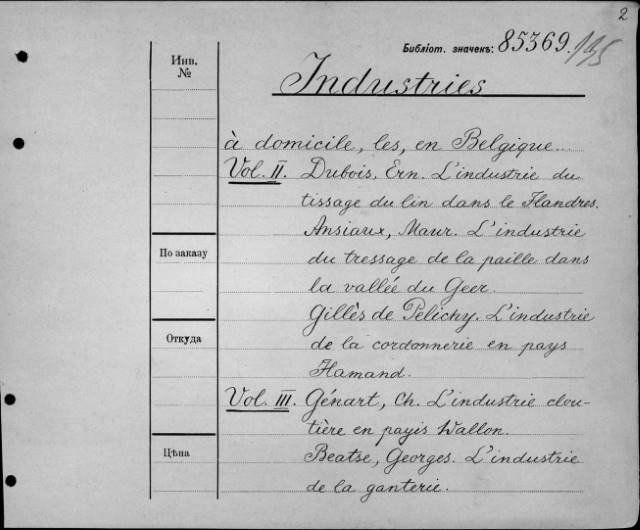 2
Библіот. значекъ: 85369.
195
Инв.
№
Industries
à domicile, les, en Belgique.
Vol. II. Dubois, Ern. L'industrie du
tissage du lin dans le Flandres.
Ansiaux, Maur. L'industrie
По заказу
du tressage de la paille dans
la vallée du Geer.
Gillès de Pelichy. L'industrie
Откуда
de la cordonnerie en pays
Flamand.
Vol. III. Génart, Ch. L'industrie clou-
tière en payis Wallon.
Цѣна
Beatse, Georges. L'industrie
de la ganterie.